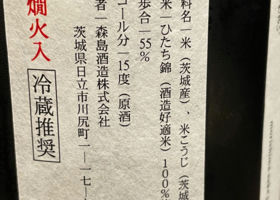 料名｜米（茨城産）、米こうじ（茨城
米｜ひたち錦（酒造好適米）100％
歩合｜55％
コール分｜15度（原酒）
者｜森島酒造株式会社
茨城県日立市川尻町一ー一七ー
燗火入
冷蔵推奨